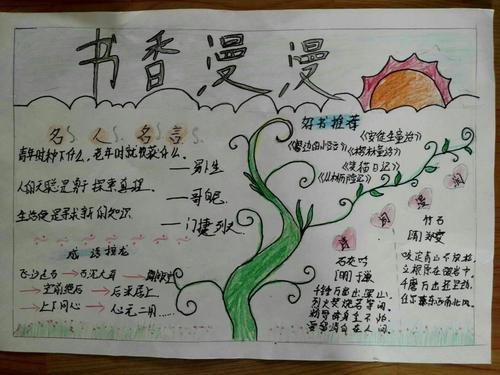 书香漫漫
名人名言
青年时种下什么，老年时就收获什么。
——易卜生
人的天职是勇于探索真理。
——哥白尼
生活便是寻求新的知识
——门捷列夫
成语接龙
飞沙走石→石沉大海
空前绝后→后来居上
→上下同心→心无二用......
好书推荐
《安徒生童话》
《窗边的小豆豆》《格林童话》
《笑猫日记》
诗词
石灰吟
[明]于谦
千锤万凿出深山，
烈火焚烧若等闲。
粉骨碎身全不怕，
要留清白在人间。
竹石
[清]郑燮
咬定青山不放松，
立根原在破岩中。
千磨万击还坚劲，
任尔东西南北风。